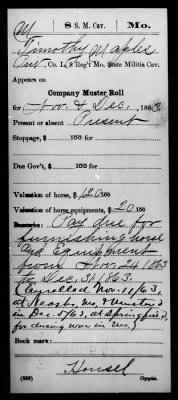 M 8 S. M. Cav. Mo.
Timothy Maples
Pvt., Co. L, 8 Reg't Mo. State Militia Cav.
Appears on
Company Muster Roll
for Nov. & Dec., 1863
Present or absent Present
Stoppage, $ 100 for
Due Gov't, $ 100 for
Valuation of horse, $ 120 100
Valuation of horse equipments, $ 20 100
Remarks: Pay due for
furnishing horse
and Equipment
from Nov. 24 1863
to Dec. 31, 1863.
(Enrolled Nov. 11/63,
at Neosho, Mo, & Mustered
in Dec. 5/63, at Springfield
for during war in Mo.)
Book mark:
Housel
(859) Copyist.